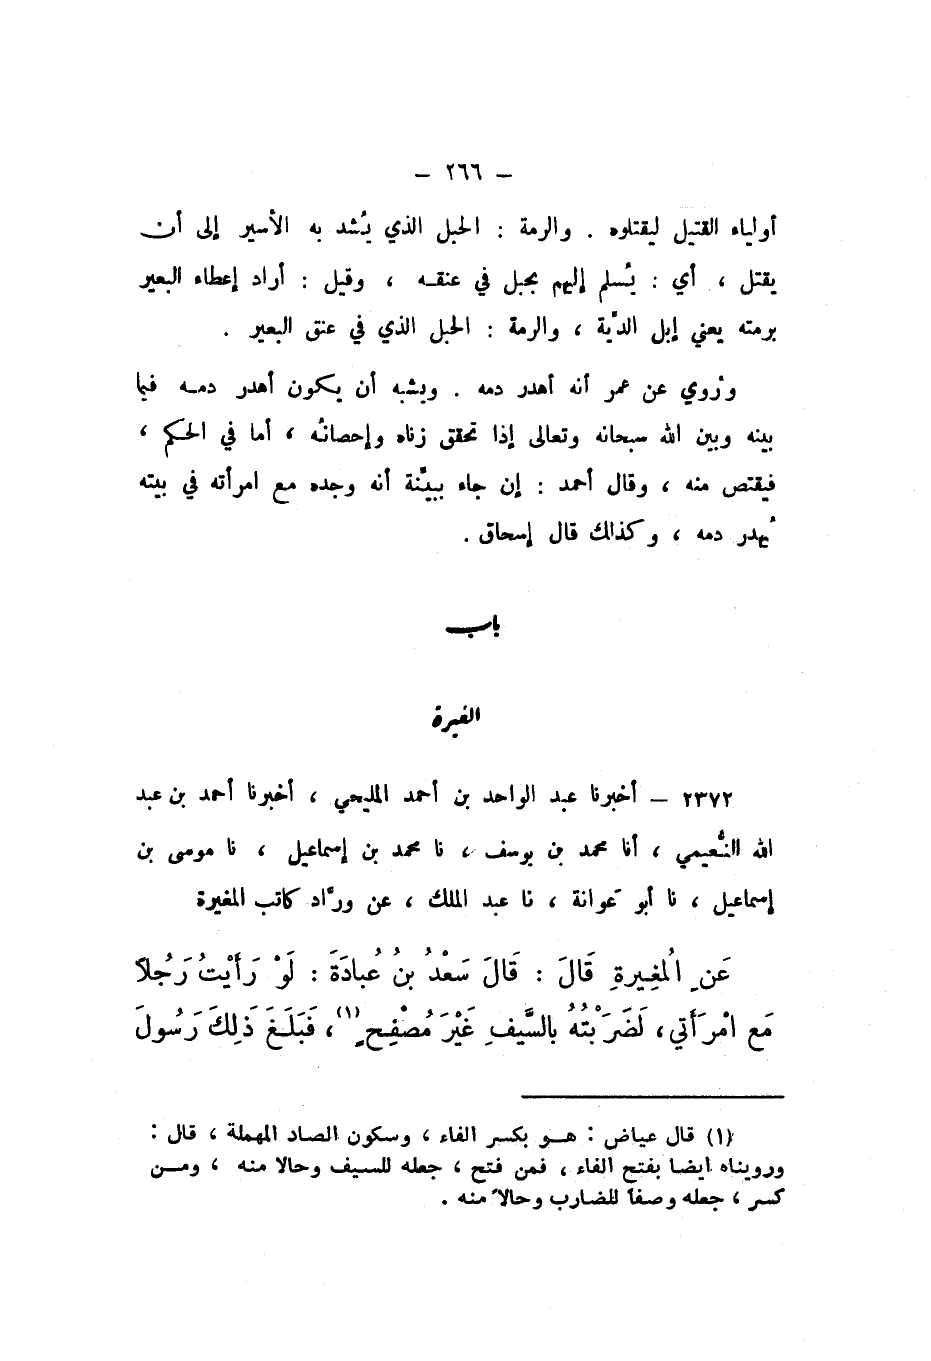 – ٢٦٦ –
أولياء القتيل ليقتلوه . والرمة : الحبل الذي يُشد به الأسير إلى أن
يقتل ، أي : يُسلم إليهم بحبل في عنقه ، وقيل : أراد إعطاء البعير
برمته يعني إبل الدِّية ، والرمة : الحبل الذي في عنق البعير .
ورُوي عن عمر أنه أهدر دمه . ويشبه أن يكون أهدر دمه فيما
بينه وبين الله سبحانه وتعالى إذا تحقق زناه وإحصانُه ، أما في الحكم ،
فيقتص منه ، وقال أحمد : إن جاء ببيِّنة أنه وجده مع امرأته في بيته
يُهدر دمه ، وكذلك قال إسحاق .
باب
الغيرة
٢٣٧٢ – أخبرنا عبد الواحد بن أحمد المليحي ، أخبرنا أحمد بن عبد
الله النُّعيمي ، أنا محمد بن يوسف ، نا محمد بن إسماعيل ، نا موسى بن
إسماعيل ، نا أبو عَوانة ، نا عبد الملك ، عن ورَّاد كاتب المغيرة
عَنِ الْمُغِيرةِ قَالَ : قَالَ سَعْدُ بنُ عُبادَةَ : لَوْ رَأَيْتُ رَجُلاً
مَع امْرَأَتي، لَضَرَبْتُهُ بالسَّيفِ غَيْرَ مُصْفِحٍ(١)، فَبَلَغَ ذٰلِكَ رَسُولَ
(١) قال عياض : هو بكسر الفاء ، وسكون الصاد المهملة ، قال :
ورويناه أيضا بفتح الفاء ، فمن فتح ، جعله للسيف وحالا منه ، ومن
كسر ، جعله وصفاً للضارب وحالاً منه .